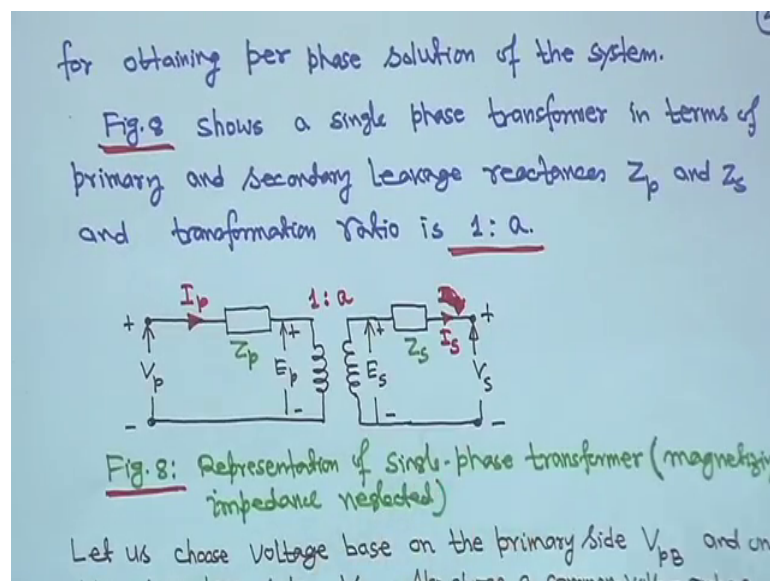 for obtaining per phase solution of the system.
Fig.8 shows a single phase transformer in terms of
primary and secondary leakage reactances Zp and Zs
and transformation ratio is 1:a.
Ip 1:a
+ + + +
Zp Zs Is
Vp Ep Es Vs
- - - -
Fig.8: Representation of single-phase transformer (magnetizing
impedance neglected)
Let us choose voltage base on the primary side VpB and on